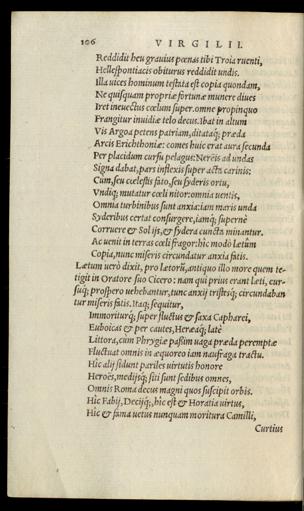 106 VIRGILII
Reddidit heu grauius pœnas tibi Troia ruenti,
Hellespontiacis obiturus reddidit undis.
Illa uices hominum testata est copia quondam,
Ne quisquam propriæ fortunæ munere diues
Iret ineuectus cœlum super. omne propinquo
Frangitur inuidiæ telo decus. Ibat in altum
Vis Argoa petens patriam, ditataq; præda
Arcis Erichthoniæ: comes huic erat aura secunda
Per placidum cursu pelagus: Nereis ad undas
Signa dabat, pars inflexis super acta carinis:
Cum, seu cœlestis fato, seu syderis ortu,
Vndiq; mutatur cœli nitor: omnia uentis,
Omnia turbinibus sunt anxia: iam maris unda
Syderibus certat consurgere, iamq; supernè
Corruere & Sol ijs, & sydera cuncta minantur.
Ac uenit in terras cœli fragor: hic modò lætum
Copia, nunc miseris circundatur anxia fatis.
Lætum uerò dixit, pro lætorū, antiquo illo more quem te-
tigit in Oratore suo Cicero: nam qui prius erant læti, cur-
suq; prospero uehebantur, tunc anxij tristesq; circundaban
tur miseris fatis. Itaq; sequitur,
Immoriturq; super fluctus & saxa Capharei,
Euboicas & per cautes, Heræaq; latè
Littora, cum Phrygiæ passim uaga præda peremptæ
Fluctuat omnis in æquoreo iam naufraga tractu.
Hic alij sidunt pariles uirtutis honore
Heroës, medijsq; siti sunt sedibus omnes,
Omnis Roma decus magni quos suscipit orbis.
Hic Fabij, Decijq;, hic est & Horatia uirtus,
Hic & fama uetus nunquam moritura Camilli,
Curtius